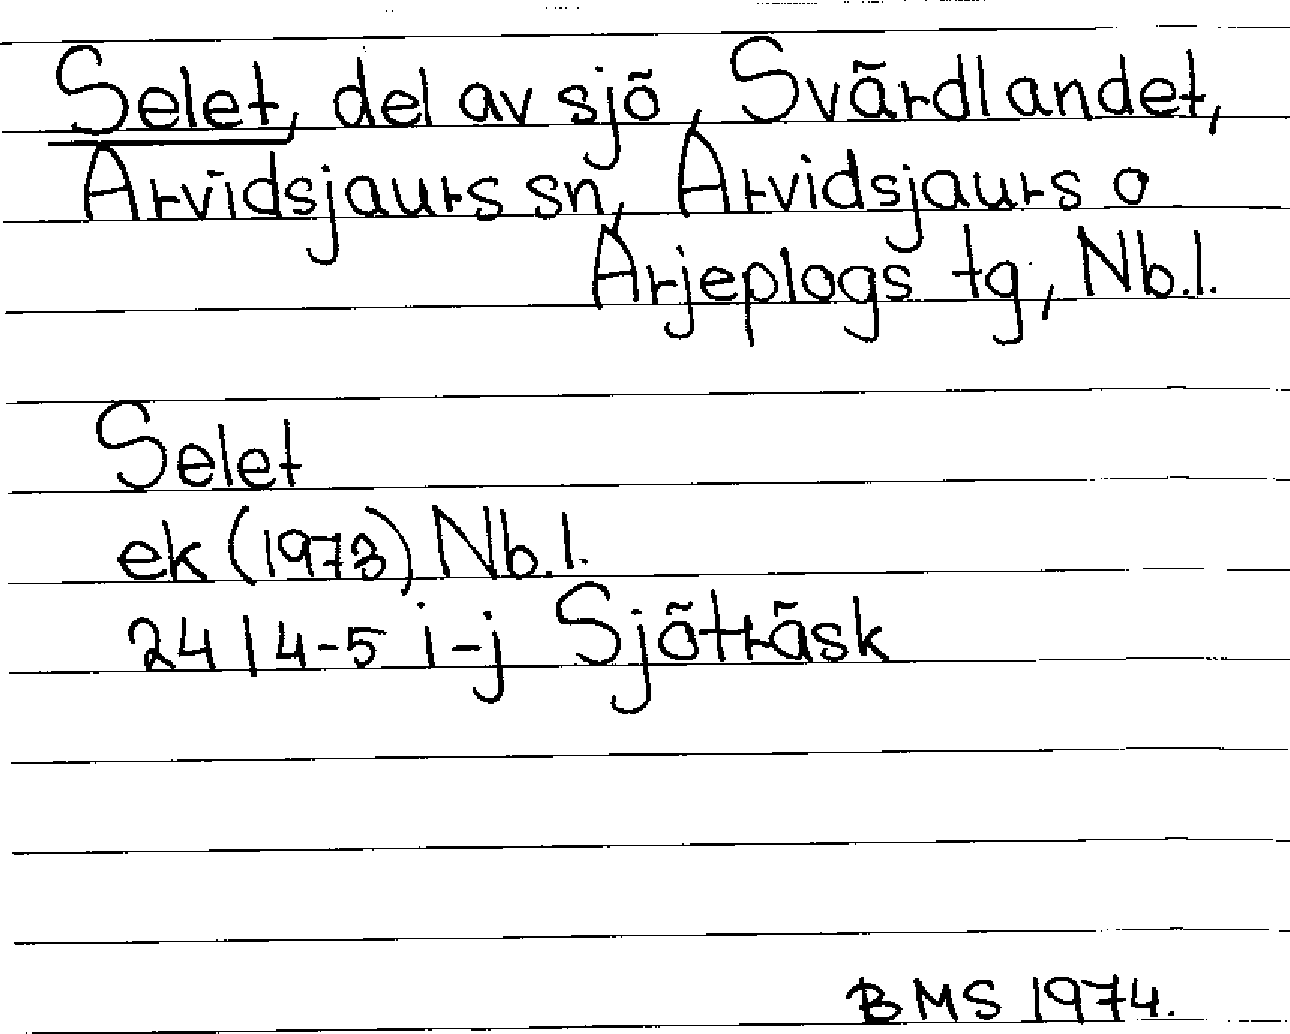 Selet, del av sjö, Svärdlandet,
Arvidsjaurs sn, Arvidsjaurs o
Arjeplogs tg, Nb.l.
Selet
ek (1973) Nb.l.
24 I 4-5 i-j Sjöträsk
BMS 1974.